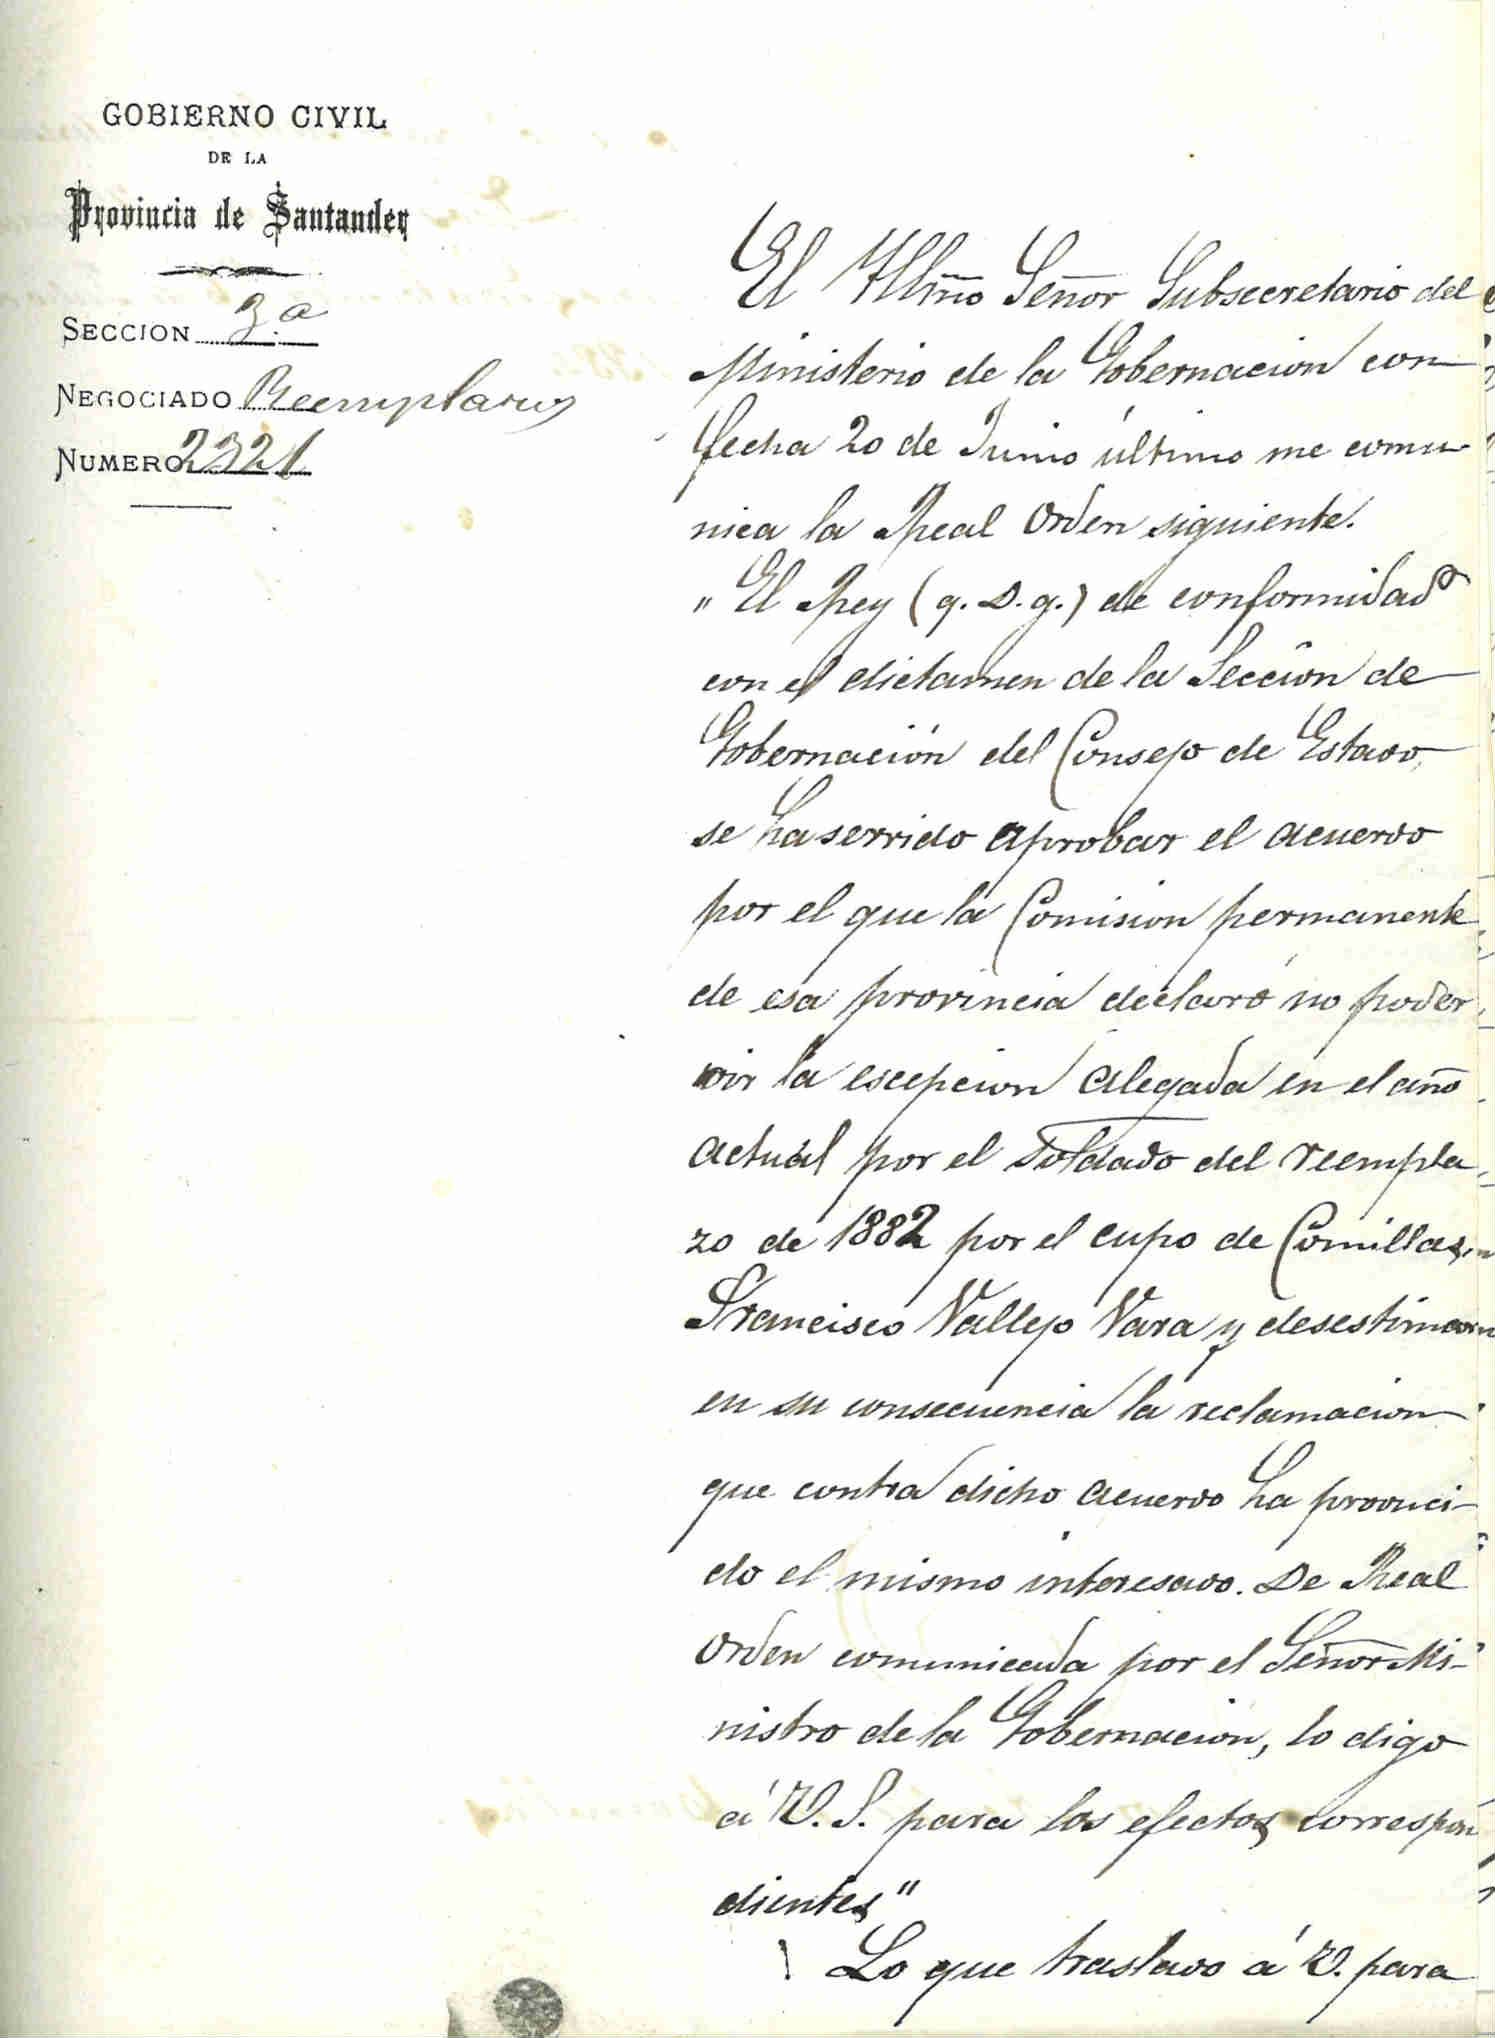 GOBIERNO CIVIL
DE LA
Provincia de Santander
SECCION 3.ª
NEGOCIADO Reemplazos
NUMERO 2321
El Illmo Señor Subsecretario del
Ministerio de la Gobernacion con
fecha 20 de Junio último me comu-
nica la Real Orden siguiente.
" El Rey (q. D. g.) de conformidad
con el dictamen de la Seccion de
Gobernación del Consejo de Estado,
se ha servido aprobar el acuerdo
por el que la Comision permanente
de esa provincia declaró no poder
oir la escepcion alegada en el año
actual por el Soldado del reempla-
zo de 1882 por el cupo de Comillas,
Francisco Vallejo Vara y desestimar
en su consecuencia la reclamacion
que contra dicho acuerdo ha produci-
do el mismo interesado. De Real
Orden comunicada por el Señor Mi-
nistro de la Gobernacion, lo digo
á V. S. para los efectos correspon
dientes"
Lo que traslado á V. para